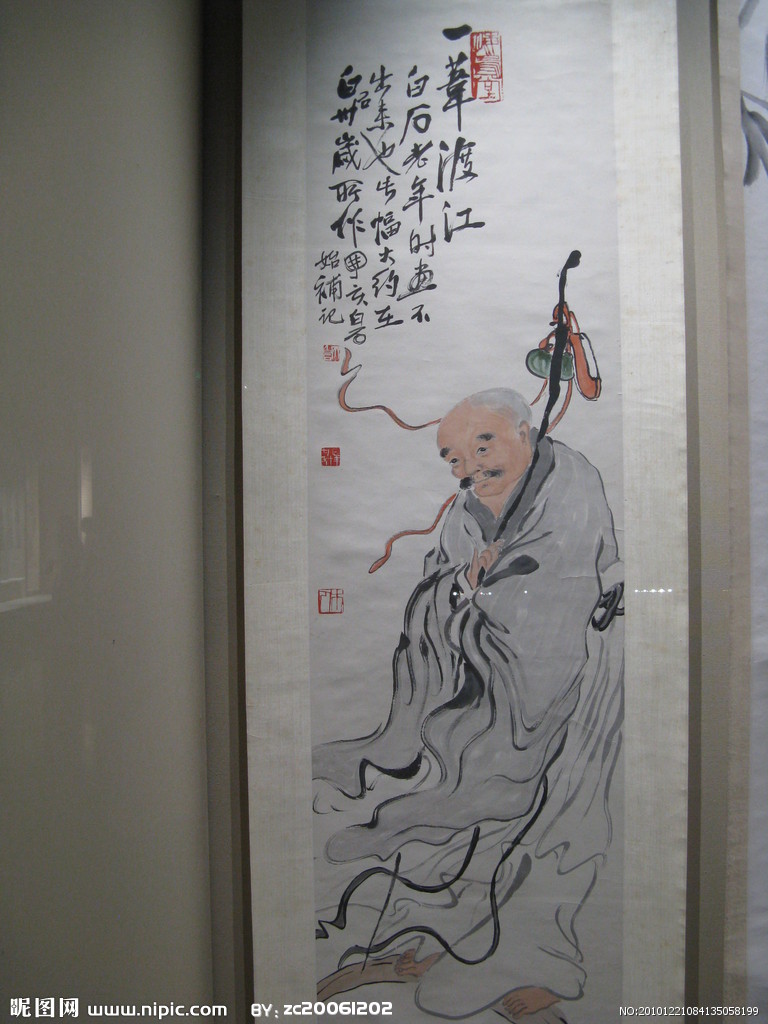 一葦渡江
白石老年时畫不
出来也此幅大約在
白石卅歲所作亥白石
始補記
昵图网 www.nipic.com BY: zc20061202
NO:20101221084135058199